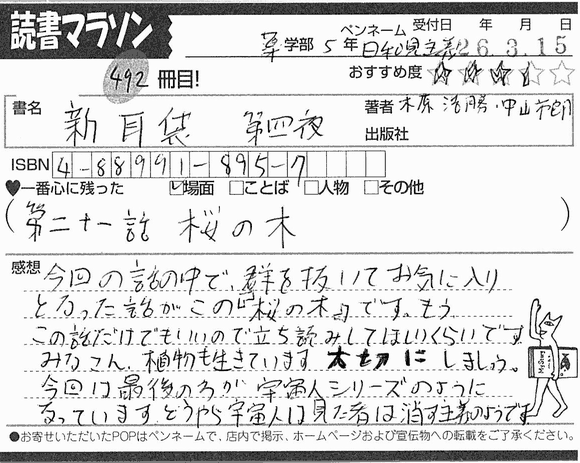 読書マラソン
ペンネーム 受付日 年 月 日
薬学部 5年 日和見主義 26.3.15
492 冊目!
おすすめ度
書名 新耳袋 第四夜
著者 木原浩勝・中山市朗
出版社
ISBN 4-88991-895-7
一番心に残った 場面 ことば 人物 その他
(第二十一話 桜の木)
感想
今回の話の中で、群を抜いてお気に入り
となった話がこの『桜の木』です。もう
この話だけでもいいので立ち読みしてほしいくらいです
みなさん、植物も生きています 大切に しましょう。
今回は最後の方が宇宙人シリーズのように
なっています。どうやら宇宙人は見た者は消す主義のようです
●お寄せいただいたPOPはペンネームで、店内で掲示、ホームページおよび宣伝物への転載をご了承ください。